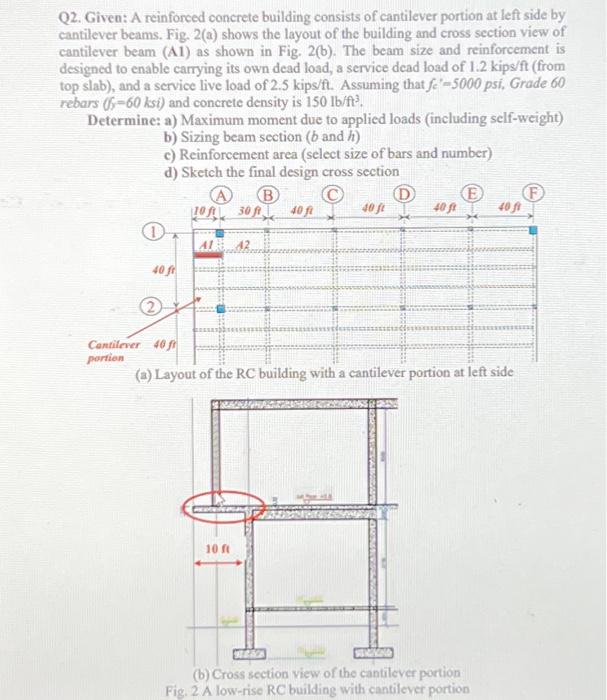 Q2. Given: A reinforced concrete building consists of cantilever portion at left side by
cantilever beams. Fig. 2(a) shows the layout of the building and cross section view of
cantilever beam (A1) as shown in Fig. 2(b). The beam size and reinforcement is
designed to enable carrying its own dead load, a service dead load of 1.2 kips/ft (from
top slab), and a service live load of 2.5 kips/ft. Assuming that fc'=5000 psi, Grade 60
rebars (fy=60 ksi) and concrete density is 150 lb/ft³.
Determine: a) Maximum moment due to applied loads (including self-weight)
b) Sizing beam section (b and h)
c) Reinforcement area (select size of bars and number)
d) Sketch the final design cross section
A B C D E F
10 ft 30 ft 40 ft 40 ft 40 ft 40 ft
1
A1 A2
40 ft
2
Cantilever 40 ft
portion
(a) Layout of the RC building with a cantilever portion at left side
10 ft
(b) Cross section view of the cantilever portion
Fig. 2 A low-rise RC building with cantilever portion